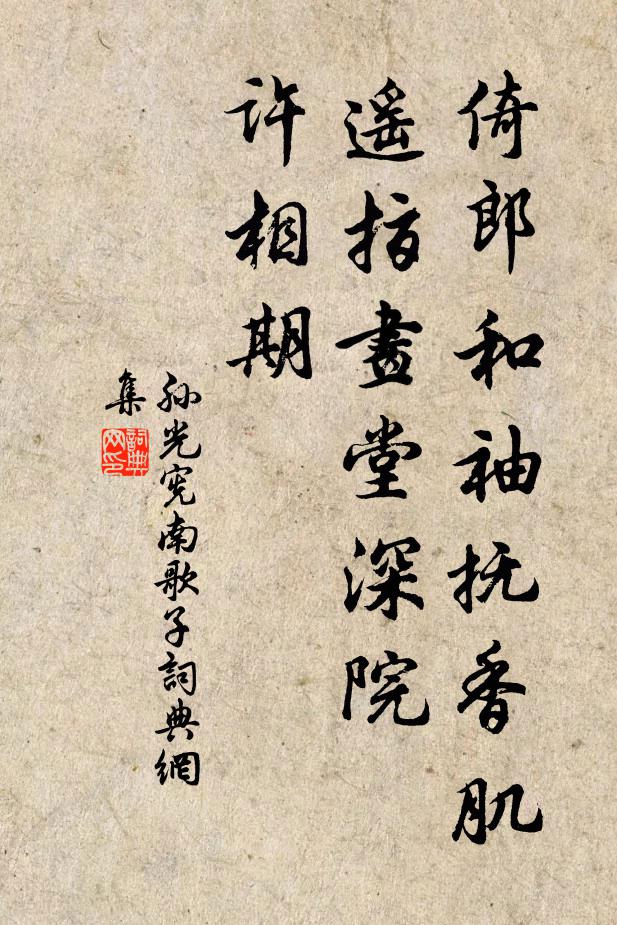 倚郎和袖抚香肌
遥指畫堂深院
許相期
孙光宪南歌子詞典網
集
詞典
网印